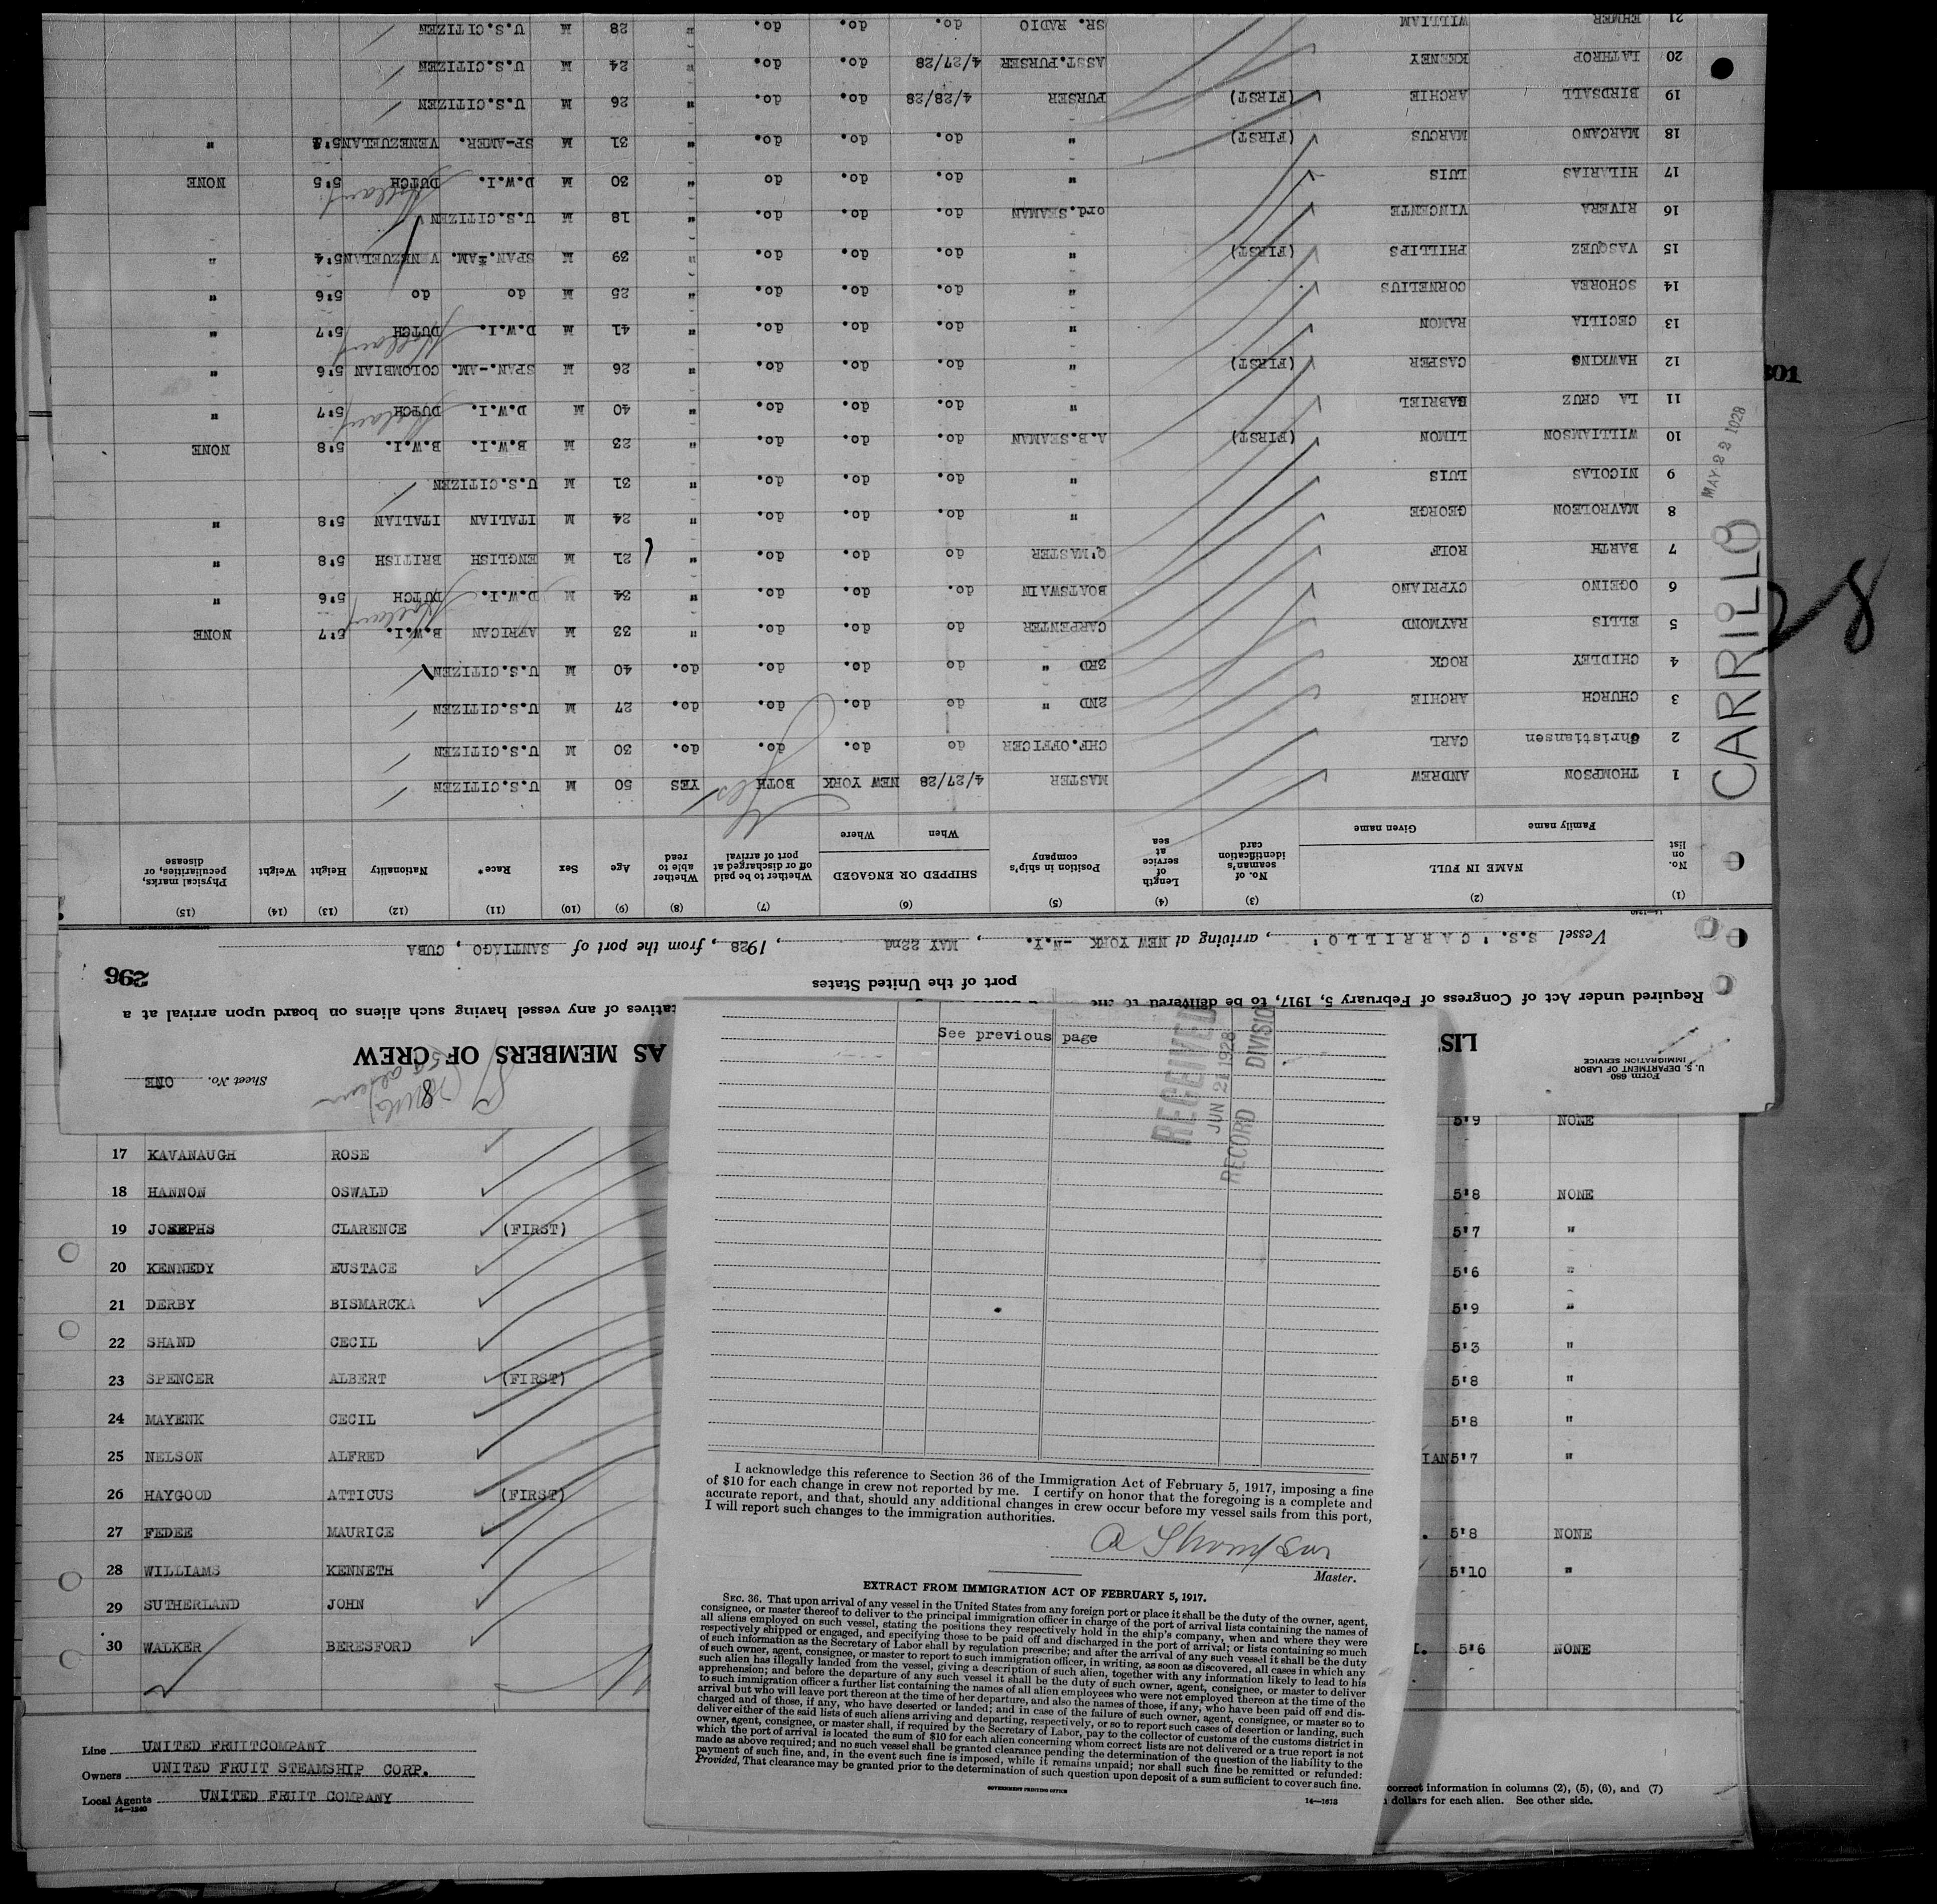 Form 680
U. S. DEPARTMENT OF LABOR
IMMIGRATION SERVICE
Sheet No. ONE
LIS
AS MEMBERS OF CREW
Required under Act of Congress of February 5, 1917, to be delivered to the
tatives of any vessel having such aliens on board upon arrival at a
port of the United States
296
Vessel S.S. 'CARRILLO', arriving at NEW YORK -N.Y., MAY 22nd, 1928, from the port of SANTIAGO, CUBA
14—1240
(1) (2) (3) (4) (5) (6) (7) (8) (9) (10) (11) (12) (13) (14) (15)
No. on list NAME IN FULL No. of seaman's identification card Length of service at sea Position in ship's company SHIPPED OR ENGAGED Whether to be paid off or discharged at port of arrival Whether able to read Age Sex Race* Nationality Height Weight Physical marks, peculiarities, or disease
Family name Given name When Where
1 THOMPSON ANDREW MASTER 4/27/28 NEW YORK BOTH YES 50 M U.S.CITIZEN
2 Christiansen CARL CHF.OFFICER do do. do. do. 30 M U.S.CITIZEN
3 CHURCH ARCHIE 2ND " do do. do. do. 27 M U.S.CITIZEN
4 CHIDLEY ROCK 3RD " do do. do. do. 40 M U.S.CITIZEN
5 ELLIS RAYMOND CARPENTER do do. do. " 33 M AFRICAN B.W.I. 5'7 NONE
6 OGEINO CYPRIANO BOATSWAIN do. do. do. " 34 M D.W.I. DUTCH Holland 5'6 "
7 BARTH ROLF Q'MASTER do do. do. " 21 M ENGLISH BRITISH 5'8 "
8 MAVROLEON GEORGE " do. do. do. " 24 M ITALIAN ITALIAN 5'8 "
9 NICOLAS LUIS " do. do. do. " 31 M U.S.CITIZEN
10 WILLIAMSON LIMON (FIRST) A.B.SEAMAN do. do. do. " 23 M B.W.I. B.W.I. 5'8 NONE
11 LA CRUZ GABRIEL " do. do. do. " 40 M D.W.I. DUTCH Holland 5'7 "
12 HAWKINS CASPER (FIRST) " do. do. do. " 26 M SPAN.-AM. COLOMBIAN 5'6 "
13 CECILIA RAMON " do. do. do. " 41 M D.W.I. DUTCH Holland 5'7 "
14 SCHOREA CORNELIUS " do. do. do. " 25 M do do 5'6 "
15 VASQUEZ PHILLIPS (FIRST) " do. do. do. " 39 M SPAN.-AM. VENEZUELAN 5'4 "
16 RIVERA VINCENTE ord.SEAMAN do. do. do. " 18 M U.S.CITIZEN
17 HILARIAS LUIS " do. do. do " 30 M D.W.I. DUTCH Holland 5'5 NONE
18 MARCANO MARCUS (FIRST) " do. do. do. " 31 M SP-AMER. VENEZUELAN 5'8 "
19 BIRDSALL ARCHIE (FIRST) PURSER 4/28/28 do. do. " 26 M U.S.CITIZEN
20 LATHROP KEENEY ASST.PURSER 4/27/28 do. do. " 24 M U.S.CITIZEN
21 EHMER WILLIAM SR. RADIO do. do. do. " 28 M U.S.CITIZEN
Yes
MAY 22 1928
CARRILLO
28
301
5'9 NONE
17 KAVANAUGH ROSE
18 HANNON OSWALD 5'8 NONE
19 JOSEPHS CLARENCE (FIRST) 5'7 "
20 KENNEDY EUSTACE 5'6 "
21 DERBY BISMARCKA 5'9 "
22 SHAND CECIL 5'3 "
23 SPENCER ALBERT (FIRST) 5'8 "
24 MAYENK CECIL 5'8 "
25 NELSON ALFRED IAN 5'7 "
26 HAYGOOD ATTICUS (FIRST)
27 FEDEE MAURICE . 5'8 NONE
28 WILLIAMS KENNETH 5'10 "
29 SUTHERLAND JOHN
30 WALKER BERESFORD I. 5'6 NONE
Line UNITED FRUITCOMPANY
Owners UNITED FRUIT STEAMSHIP CORP.
Local Agents UNITED FRUIT COMPANY
14—1240
correct information in columns (2), (5), (6), and (7)
dollars for each alien. See other side.
See previous page
RECEIVED
JUN 21 1928
RECORD DIVISIO
I acknowledge this reference to Section 36 of the Immigration Act of February 5, 1917, imposing a fine
of $10 for each change in crew not reported by me. I certify on honor that the foregoing is a complete and
accurate report, and that, should any additional changes in crew occur before my vessel sails from this port,
I will report such changes to the immigration authorities.
A Thompson
Master.
EXTRACT FROM IMMIGRATION ACT OF FEBRUARY 5, 1917.
SEC. 36. That upon arrival of any vessel in the United States from any foreign port or place it shall be the duty of the owner, agent,
consignee, or master thereof to deliver to the principal immigration officer in charge of the port of arrival lists containing the names of
all aliens employed on such vessel, stating the positions they respectively hold in the ship's company, when and where they were
respectively shipped or engaged, and specifying those to be paid off and discharged in the port of arrival; or lists containing so much
of such information as the Secretary of Labor shall by regulation prescribe; and after the arrival of any such vessel it shall be the duty
of such owner, agent, consignee, or master to report to such immigration officer, in writing, as soon as discovered, all cases in which any
such alien has illegally landed from the vessel, giving a description of such alien, together with any information likely to lead to his
apprehension; and before the departure of any such vessel it shall be the duty of such owner, agent, consignee, or master to deliver
to such immigration officer a further list containing the names of all alien employees who were not employed thereon at the time of the
arrival but who will leave port thereon at the time of her departure, and also the names of those, if any, who have been paid off and dis-
charged and of those, if any, who have deserted or landed; and in case of the failure of such owner, agent, consignee, or master so to
deliver either of the said lists of such aliens arriving and departing, respectively, or so to report such cases of desertion or landing, such
owner, agent, consignee, or master shall, if required by the Secretary of Labor, pay to the collector of customs of the customs district in
which the port of arrival is located the sum of $10 for each alien concerning whom correct lists are not delivered or a true report is not
made as above required; and no such vessel shall be granted clearance pending the determination of the question of the liability to the
payment of such fine, and, in the event such fine is imposed, while it remains unpaid; nor shall such fine be remitted or refunded:
Provided, That clearance may be granted prior to the determination of such question upon deposit of a sum sufficient to cover such fine.
GOVERNMENT PRINTING OFFICE
14—1618